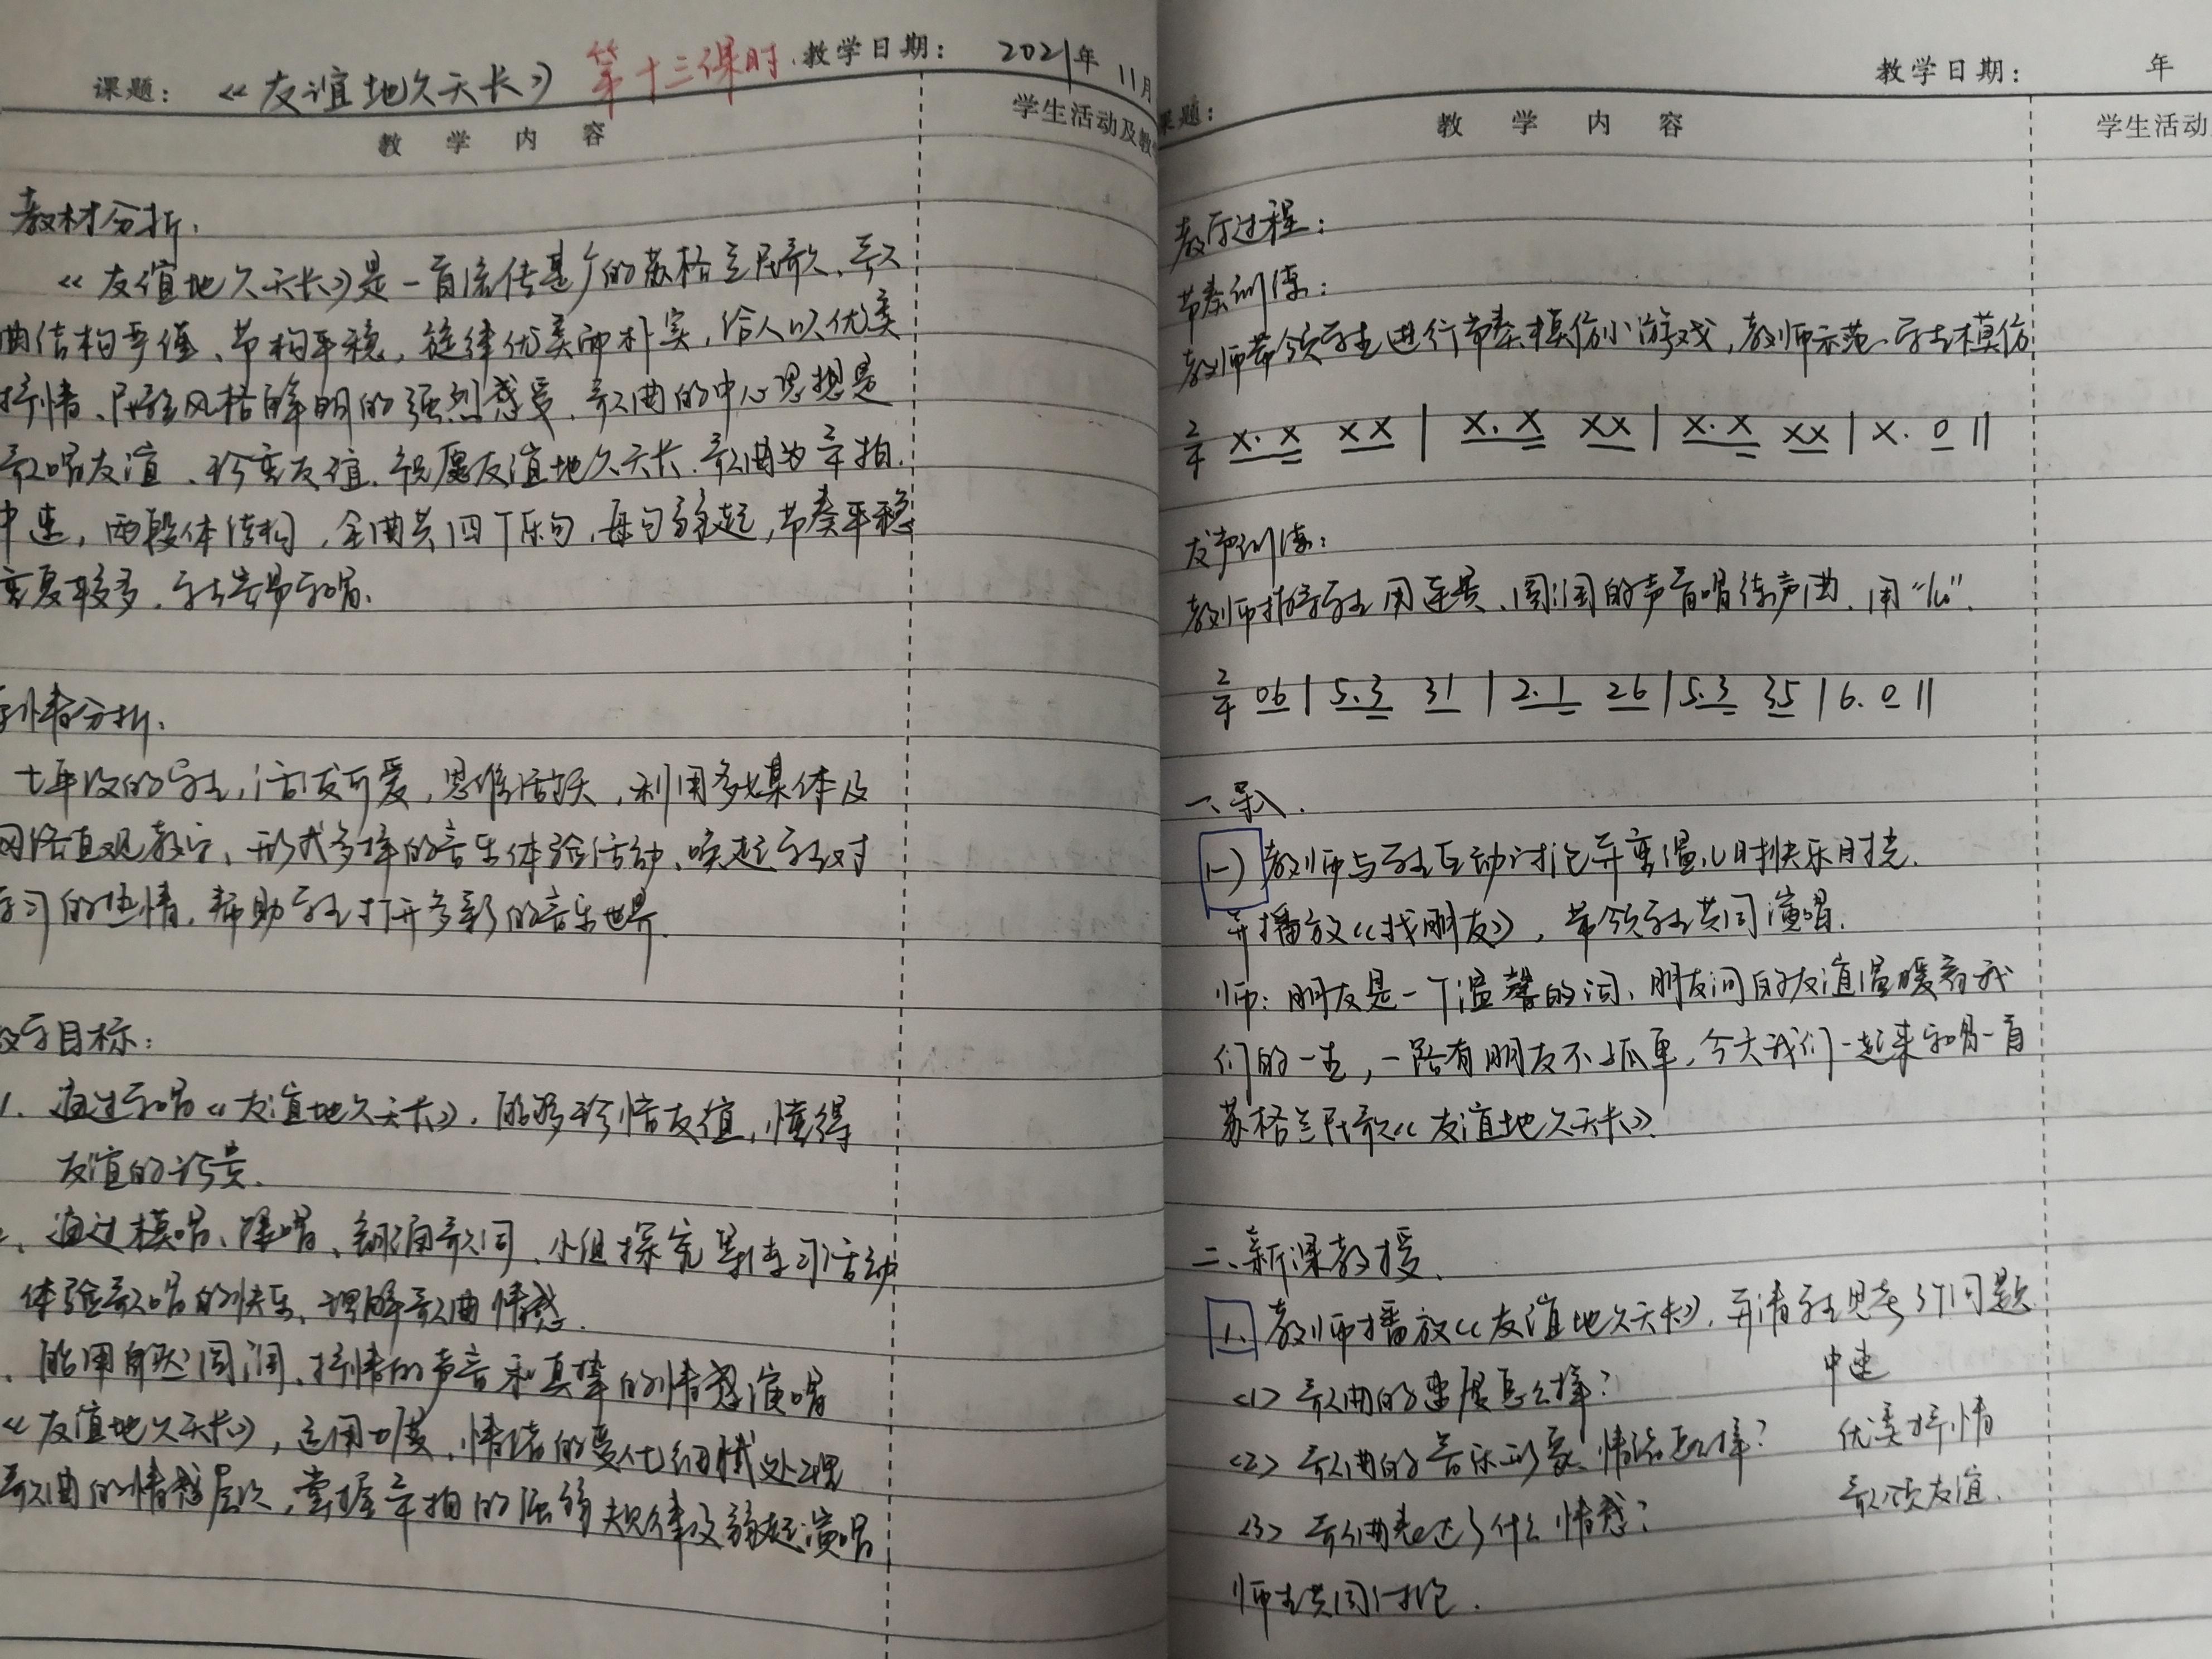 课题：《友谊地久天长》 第十三课时 教学日期： 2021年 11月
教 学 内 容 学生活动及教
教材分析.
《友谊地久天长》是一首流传甚广的苏格兰民歌、歌
曲结构严谨、节构平稳，旋律优美而朴实，给人以优美
抒情、民歌风格鲜明的强烈感受、歌曲的中心思想是
歌唱友谊、珍变友谊、祝愿友谊地久天长.歌曲为2/4拍.
中速，两段体结构，全曲共四个乐句，每句弱起，节奏平稳
变复较多，学生容易学唱、
学情分析.
七年段的学生，活泼可爱，思维活跃，利用多媒体及
网络直观教学、形式多样的音乐体验活动、唤起学生对
学习的热情，帮助学生打开多彩的音乐世界.
教学目标：
1. 通过学唱《友谊地久天长》，能够珍惜友谊，懂得
友谊的珍贵.
、通过模唱、、朗诵歌词、小组探究等练习活动
体验歌唱的快乐、理解歌曲情感.
、能用自然圆润、抒情的声音和真挚的情感演唱
《友谊地久天长》，运用力度、情绪的变化细腻处理
歌曲的情感层次，掌握2/4拍的强弱规律及弱起演唱
教学日期： 年
课题：
教 学 内 容 学生活动
教学过程：
节奏训练：
教师带领学生进行节奏模仿小游戏，教师示范、学生模仿
2/4 X. X XX | X. X XX | X. X XX | X. 0 ||
发声训练：
教师指导学生用连贯、圆润的声音唱练声曲、用“lu”.
2/4 06 | 5.3 31 | 2.1 26 | 5.3 35 | 6. 0 ||
一、导入.
(一) 教师与学生互动讨论并变温儿时快乐时光.
并播放《找朋友》，带领学生共同演唱.
师：朋友是一个温馨的词、朋友间的友谊温暖着我
们的一生，一路有朋友不孤单，今天我们一起来学唱一首
苏格兰民歌《友谊地久天长》.
二、新课教授.
1. 教师播放《友谊地久天长》，并请学生思考3个问题
<1> 歌曲的速度怎么样？ 中速
<2> 歌曲的音乐形象、情绪怎么样？ 优美抒情
<3> 歌曲表达了什么情感？ 歌颂友谊.
师生共同讨论.